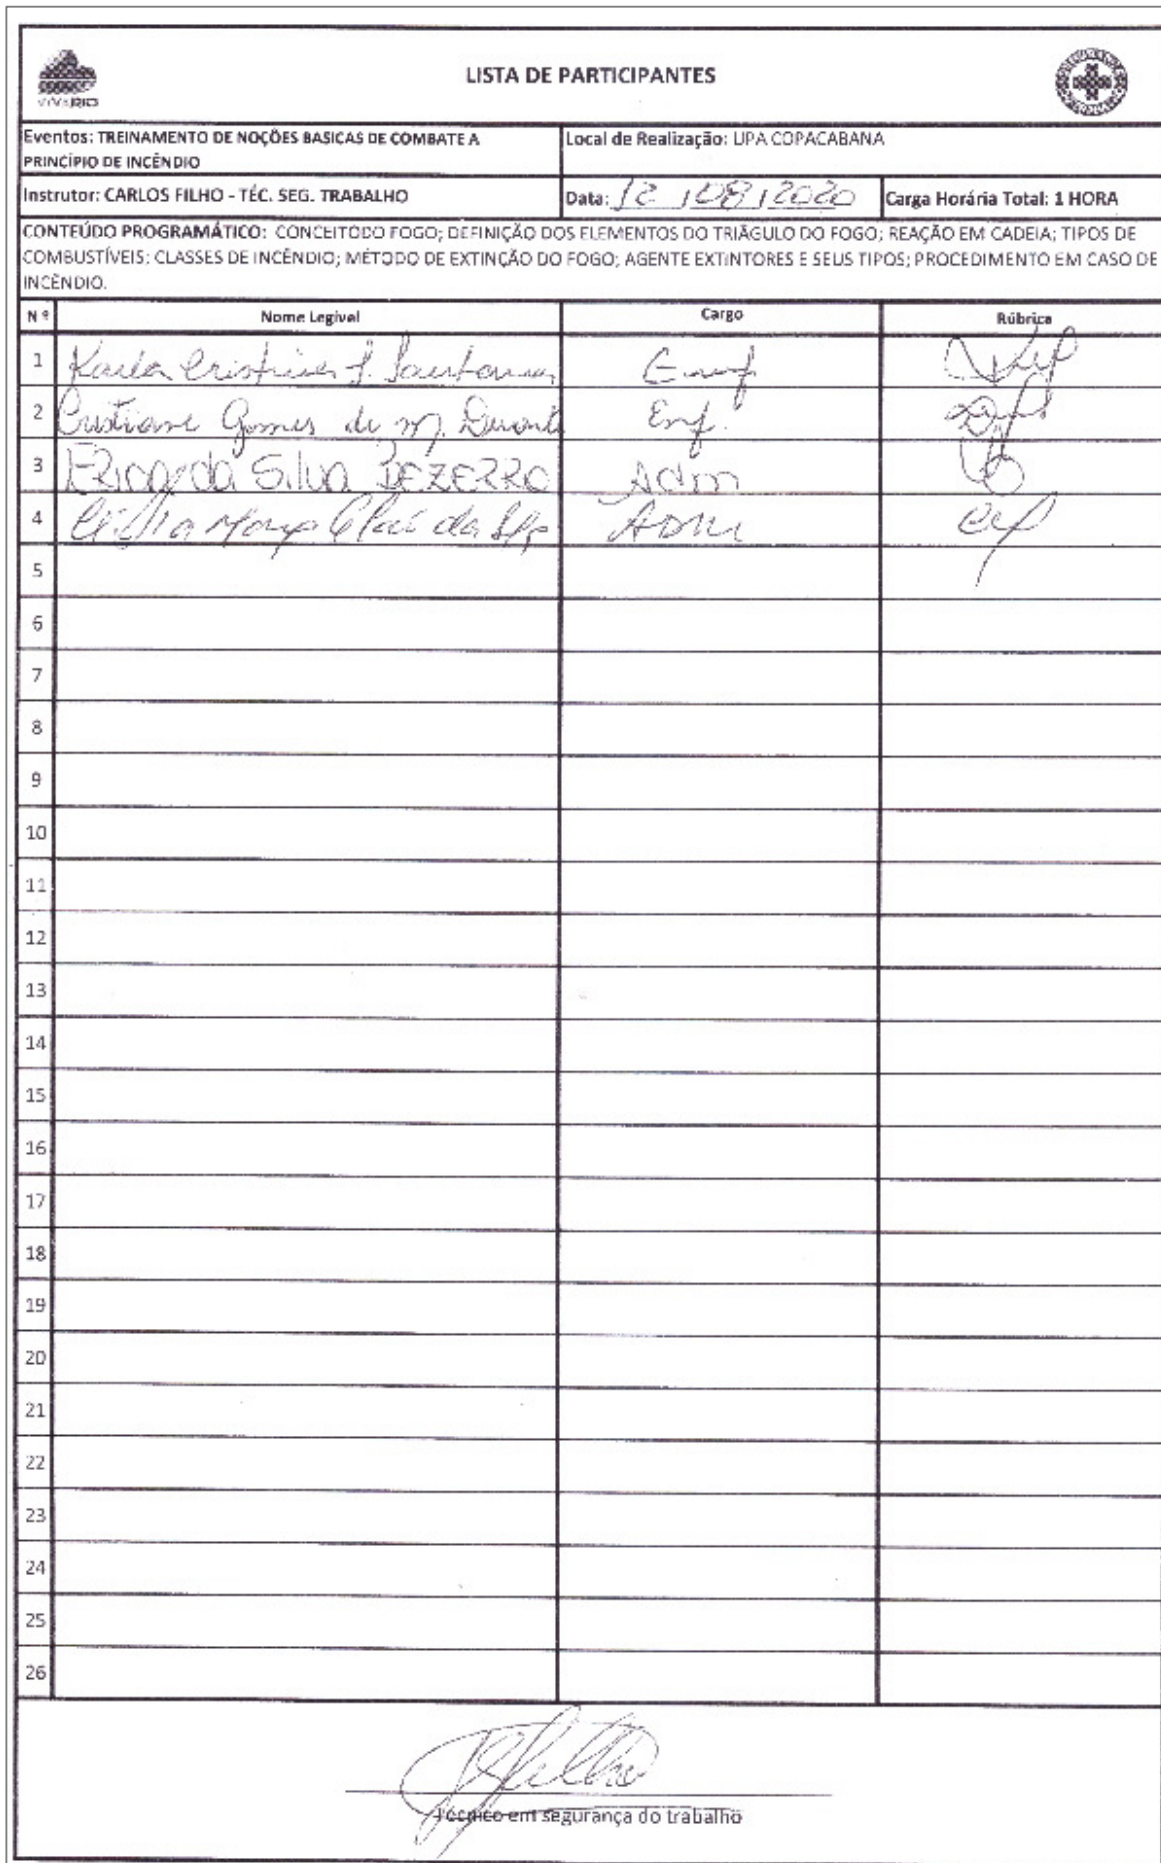 VIVARIO
LISTA DE PARTICIPANTES
Eventos: TREINAMENTO DE NOÇÕES BASICAS DE COMBATE A
PRINCÍPIO DE INCÊNDIO
Local de Realização: UPA COPACABANA
Instrutor: CARLOS FILHO - TÉC. SEG. TRABALHO
Data: 12 / 08 / 2020
Carga Horária Total: 1 HORA
CONTEÚDO PROGRAMÁTICO: CONCEITODO FOGO; DEFINIÇÃO DOS ELEMENTOS DO TRIÂGULO DO FOGO; REAÇÃO EM CADEIA; TIPOS DE
COMBUSTÍVEIS; CLASSES DE INCÊNDIO; MÉTODO DE EXTINÇÃO DO FOGO; AGENTE EXTINTORES E SEUS TIPOS; PROCEDIMENTO EM CASO DE
INCÊNDIO.
N º Nome Legível Cargo Rúbrica
1 Karla Cristina Enf
2 Cristiane Gomes de M. Enf.
3 Erica da Silva BEZERRA Adm
4 da ADM
5
6
7
8
9
10
11
12
13
14
15
16
17
18
19
20
21
22
23
24
25
26
Técnico em segurança do trabalho